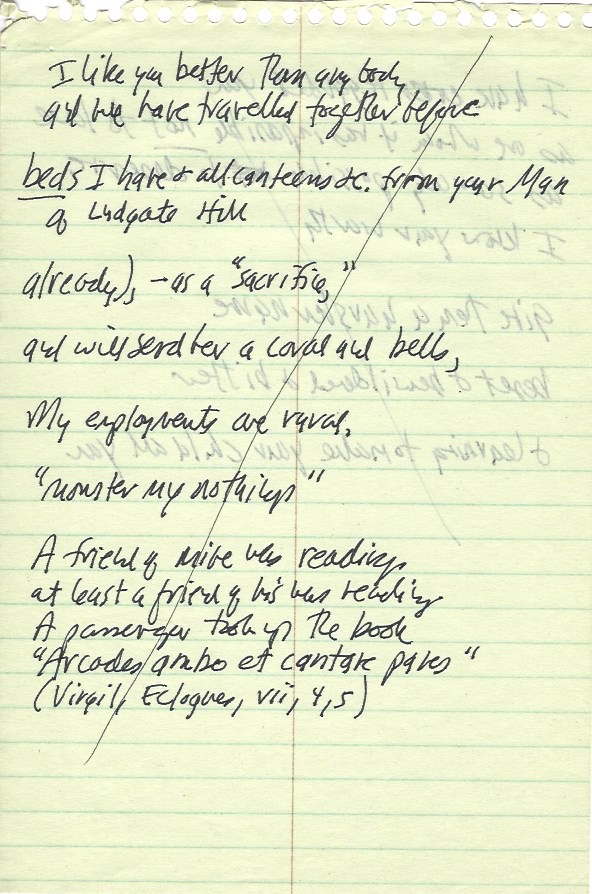 I like you better than any body
and we have travelled together before
beds I have & all canteens &c. from your Man
of Ludgate Hill
already), – as a "sacrifice,"
and will send her a coral and bells,
My employments are rural,
"monster my nothings"
A friend of mine was reading
at least a friend of his was reading
A passenger took up the book
"Arcades ambo et cantare pares"
(Virgil, Eclogues, vii, 4,5)